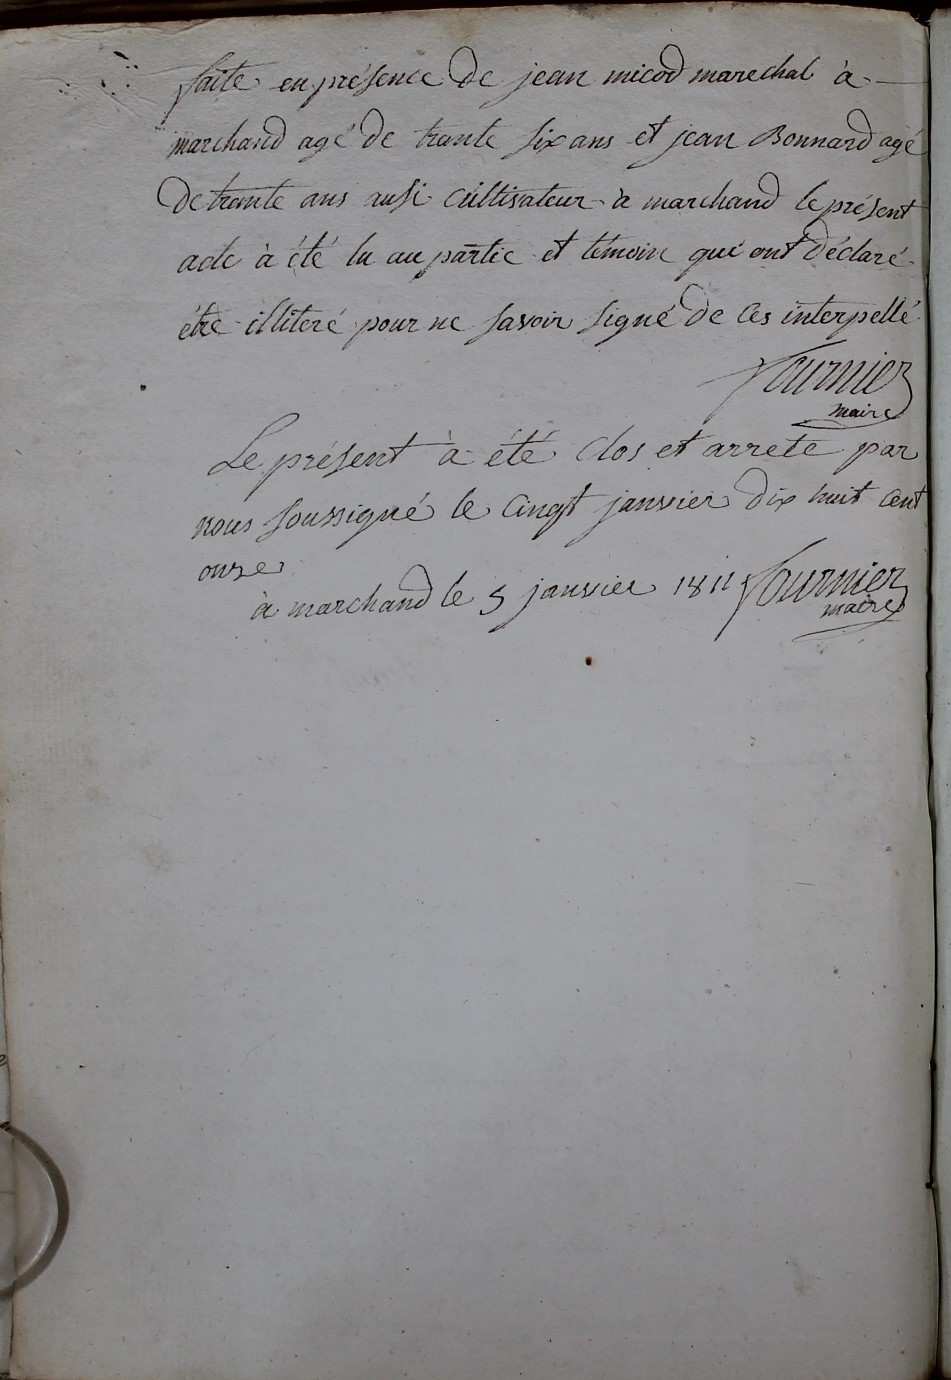 faite en présence de jean micod marechal à
marchand agé de trante six ans et jean Bonnard agé
de trante ans ausi cultisateur à marchand le présent
acte à été lu au partie et témoin qui ont déclaré
étre illiteré pour ne savoir signé de ces interpellé
fournier
maire
Le présent à été clos et arrete par
nous soussigné le cinqt janvier dix huit cent
onze
à marchand le 5 janvier 1811 fournier
maire